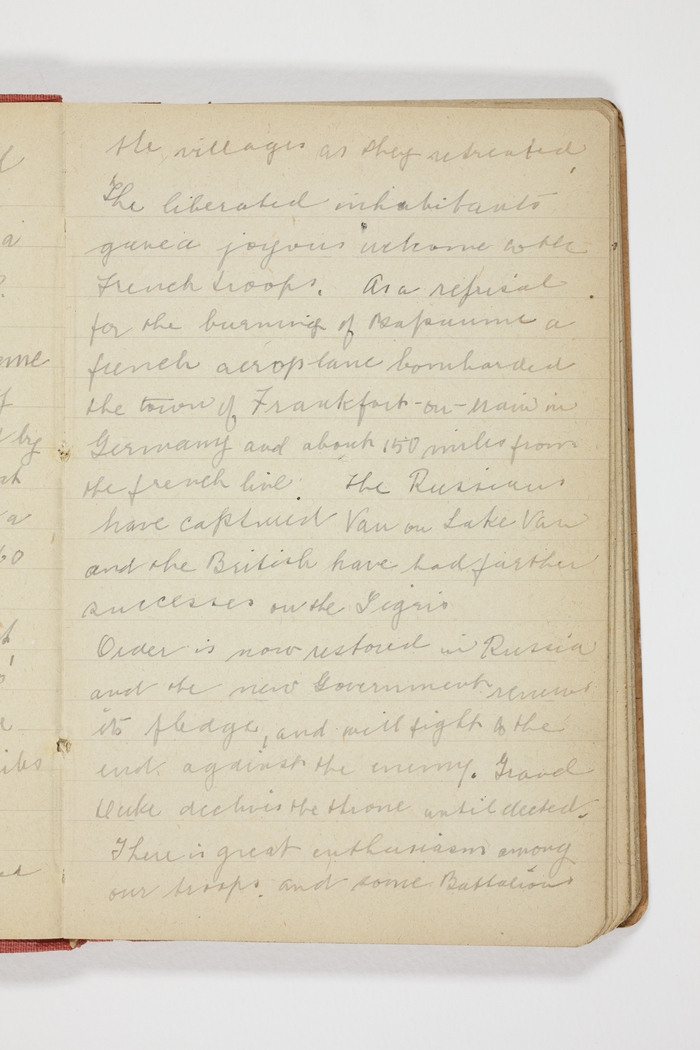 the villages as they retreated
The liberated inhabitants
gave a joyous welcome to the
French troops. As a reprisal
for the burning of Bapaume a
french aeroplane bombarded
the town of Frankfort-on-Main in
Germany and about 150 miles from
the french line. The Russians
have captured Van on Lake Van
and the British have had further
successes on the Tigris
Order is now restored in Russia
and the new Government renews
its pledge, and will fight to the
end. against the enemy. Grand
Duke declines the throne until elected.
There is great enthusiasm among
our troops. and some Battalions
a
by
60